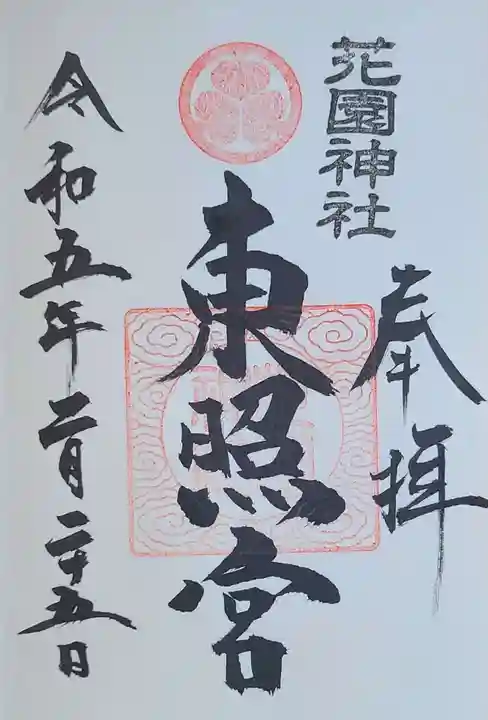 花園神社
奉拝
東照宮
令和五年二月二十五日